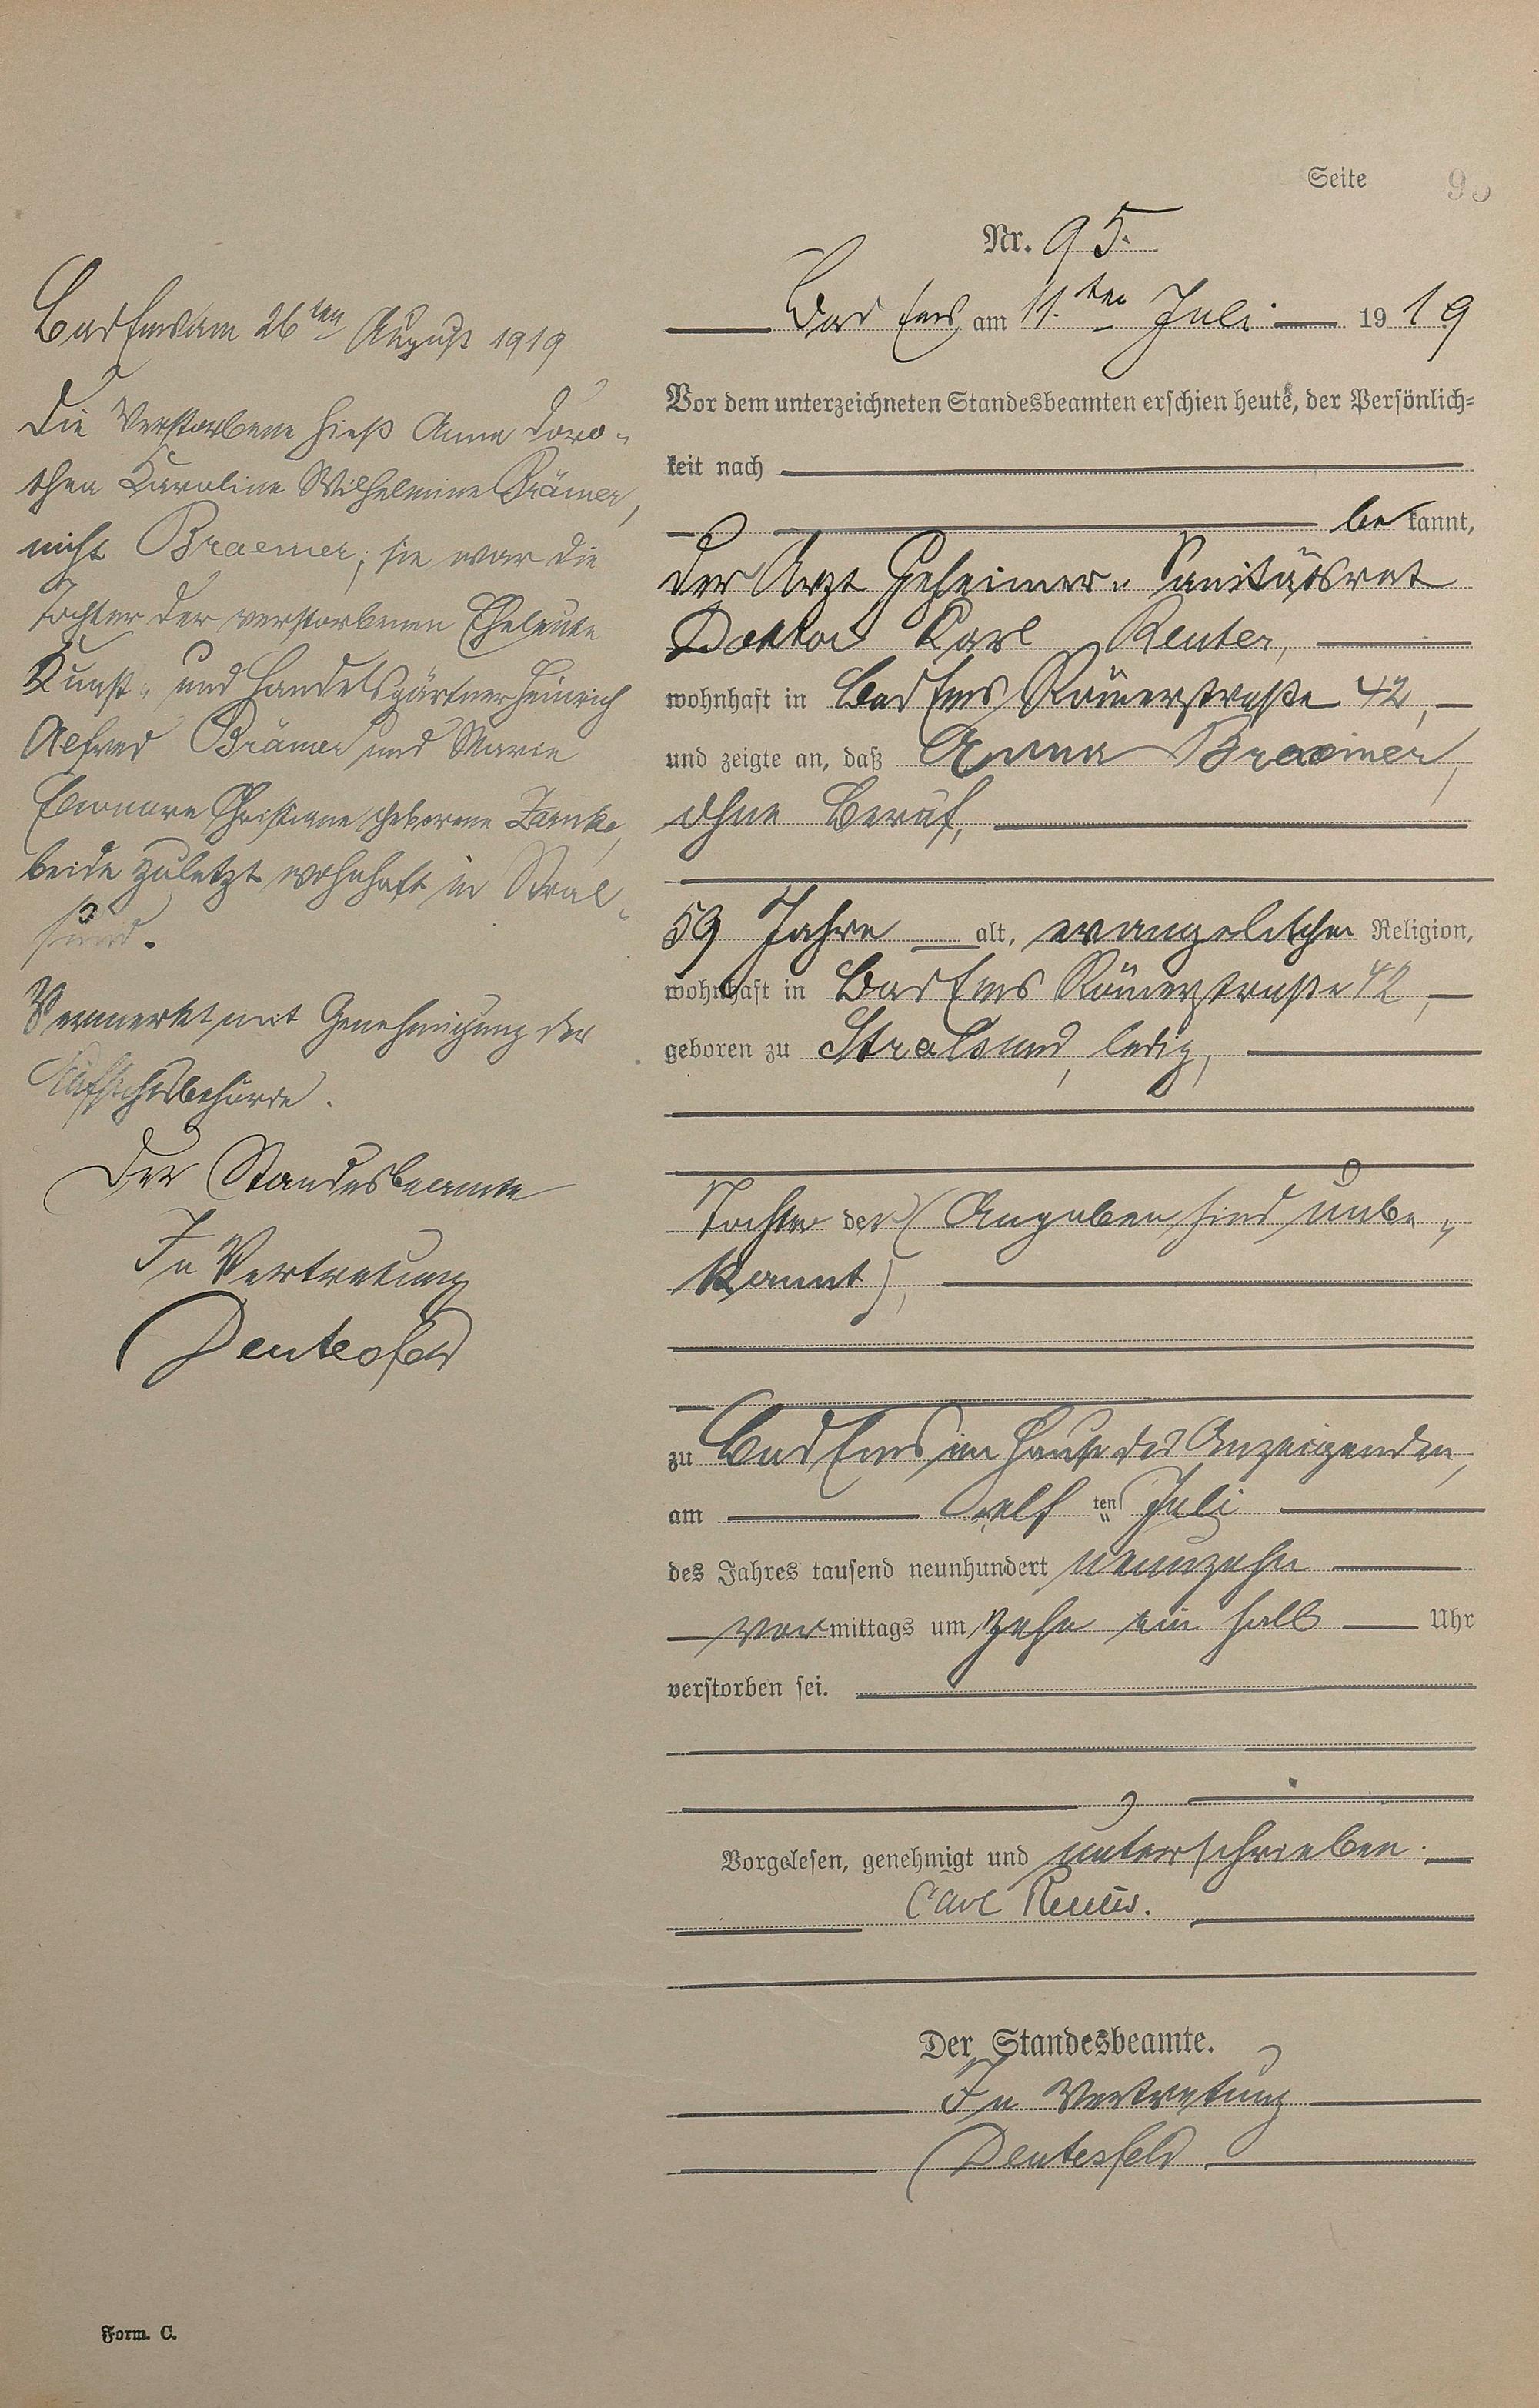 Seite 95
Nr. 95.
Bad Ems am 11.ten Juli 1919
Vor dem unterzeichneten Standesbeamten erschien heute, der Persönlich=
keit nach
bekannt,
der Arzt Geheimer Sanitätsrat
Doktor Karl Reuter,
wohnhaft in Bad Ems Römerstraße 42,
und zeigte an, daß Anna Braemer,
ohne Beruf,
59 Jahre alt, evangelischer Religion,
wohnhaft in Bad Ems Römerstraße 42,
geboren zu Stralsund, ledig,
Tochter der (Angaben sind unbe-
kannt),
zu Bad Ems im Hause des Anzeigenden,
am elften Juli
des Jahres tausend neunhundert neunzehn
vormittags um zehn ein halb Uhr
verstorben sei.
Vorgelesen, genehmigt und unterschrieben.
Carl Reuter.
Der Standesbeamte.
In Vertretung
Bad Ems am 26ten August 1919
Die Verstorbene hieß Anna Doro-
thea Karoline Wilhelmine Brämer,
nicht Braemer; sie war die
Tochter der verstorbenen Eheleute
Kunst- und Handelsgärtner Heinrich
Alfred Brämer und Marie
Christiane geborene
beide zuletzt wohnhaft in Stral-
sund.
Vermerkt mit Genehmigung der
Aufsichtsbehörde.
Der Standesbeamte
In Vertretung
Form. C.